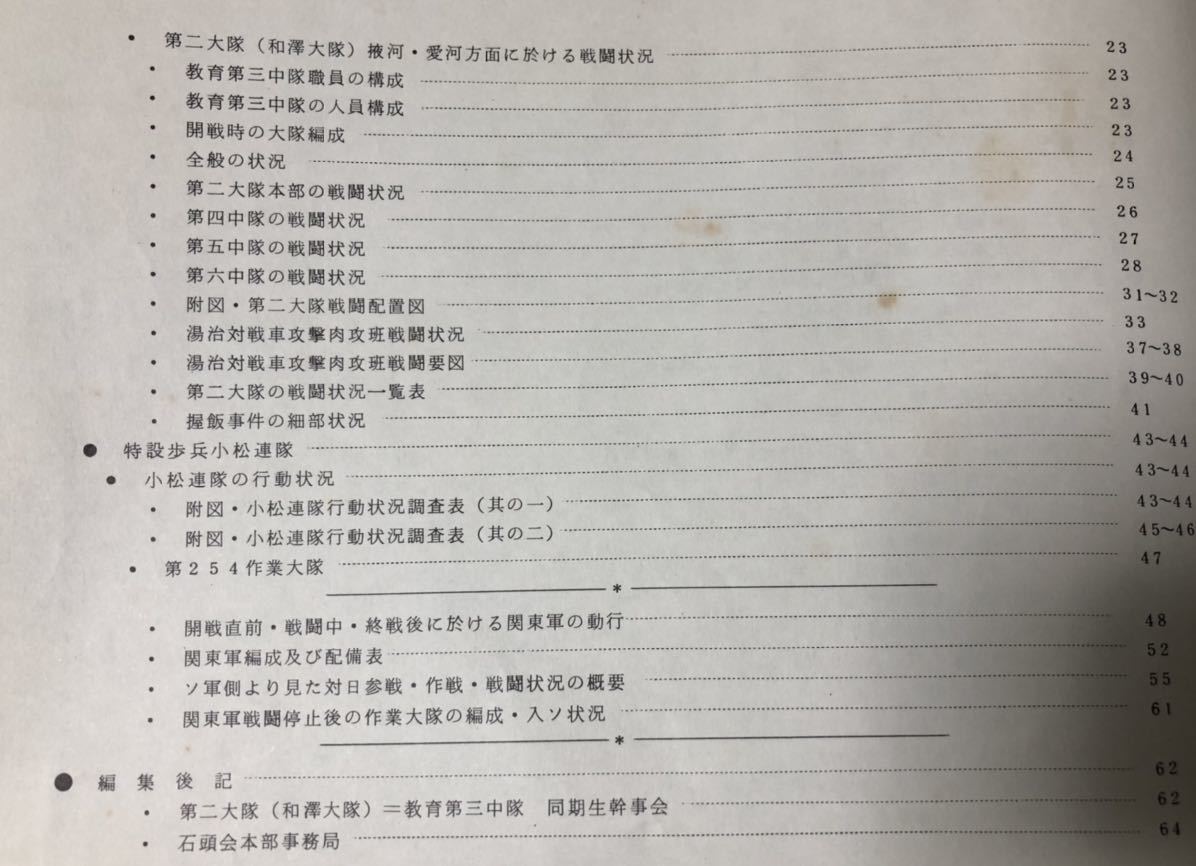 • 第二大隊（和澤大隊）掖河・愛河方面に於ける戦闘状況 23
• 教育第三中隊職員の構成 23
• 教育第三中隊の人員構成 23
• 開戦時の大隊編成 23
• 全般の状況 24
• 第二大隊本部の戦闘状況 25
• 第四中隊の戦闘状況 26
• 第五中隊の戦闘状況 27
• 第六中隊の戦闘状況 28
• 附図・第二大隊戦闘配置図 31〜32
• 湯治対戦車攻撃肉攻班戦闘状況 33
• 湯治対戦車攻撃肉攻班戦闘要図 37〜38
• 第二大隊の戦闘状況一覧表 39〜40
• 握飯事件の細部状況 41
● 特設歩兵小松連隊 43〜44
● 小松連隊の行動状況 43〜44
• 附図・小松連隊行動状況調査表（其の一） 43〜44
• 附図・小松連隊行動状況調査表（其の二） 45〜46
• 第254作業大隊 47
*
• 開戦直前・戦闘中・終戦後に於ける関東軍の動行 48
• 関東軍編成及び配備表 52
• ソ軍側より見た対日参戦・作戦・戦闘状況の概要 55
• 関東軍戦闘停止後の作業大隊の編成・入ソ状況 61
*
● 編集後記 62
• 第二大隊（和澤大隊）＝教育第三中隊 同期生幹事会 62
• 石頭会本部事務局 64